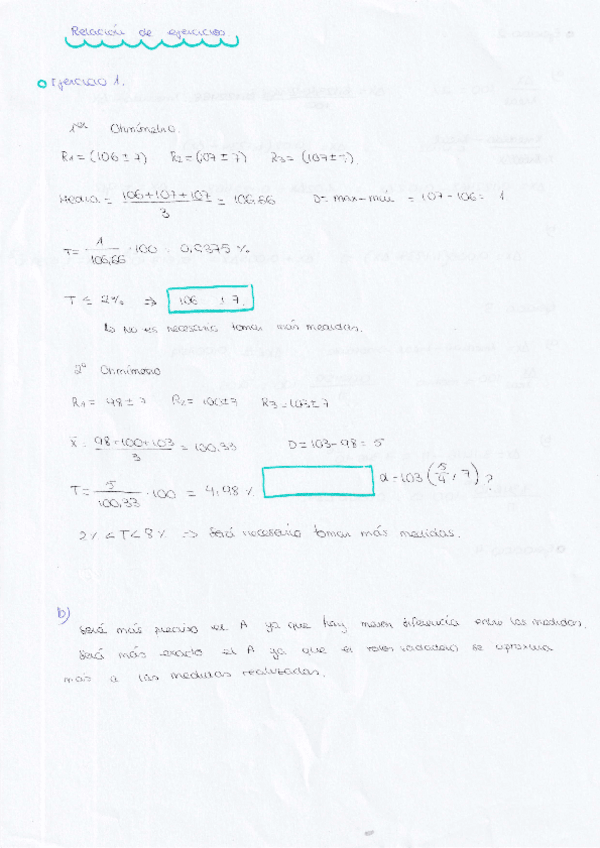 Relación de ejercicios
Ejercicio 1.
1er Ohmímetro.
R1 = (106 ± 7) R2 = (107 ± 7) R3 = (107 ± 7)
Media = (106+107+107)/3 = 106,66 D = max - mín = 107 - 106 = 1
T = 1/106,66 · 100 = 0,9375 %
T ≤ 2% ⇒ 106 ± 7
↳ No es necesario tomar más medidas.
2º
R1 = 98 ± 7 R2 = 100 ± 7 R3 = 103 ± 7
x̄ = (98+100+103)/3 = 100,33 D = 103 - 98 = 5
T = 5/100,33 · 100 = 4,98 % a = 103 (5/4, 7) ?
2% < T < 8% ⇒ Será necesario tomar más medidas.
b)
Será más preciso el A ya que hay menor diferencia entre las medidas.
Será más exacto el A ya que el valor se aproxima
más a las medidas realizadas.